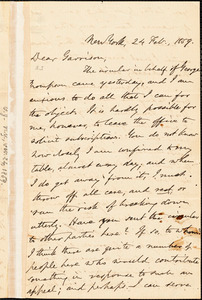 New York, 24 Feb., 1859.
Dear Garrison,
The circular in behalf of George
Thompson came yesterday, and I am
anxious to do all that I can for
the object. It is hardly possible for
me, however, to leave the office to
solicit subscriptions. You do not know
how closely I am confined to my
table, almost every day, and when
I do get away from it, I must
throw off all care, and rest or
run the risk of breaking down
utterly. Have you sent the circular
to other parties here? If so, to whom?
I think there are quite a number of
people here who would contribute
something in response to such an
appeal; and perhaps I can serve